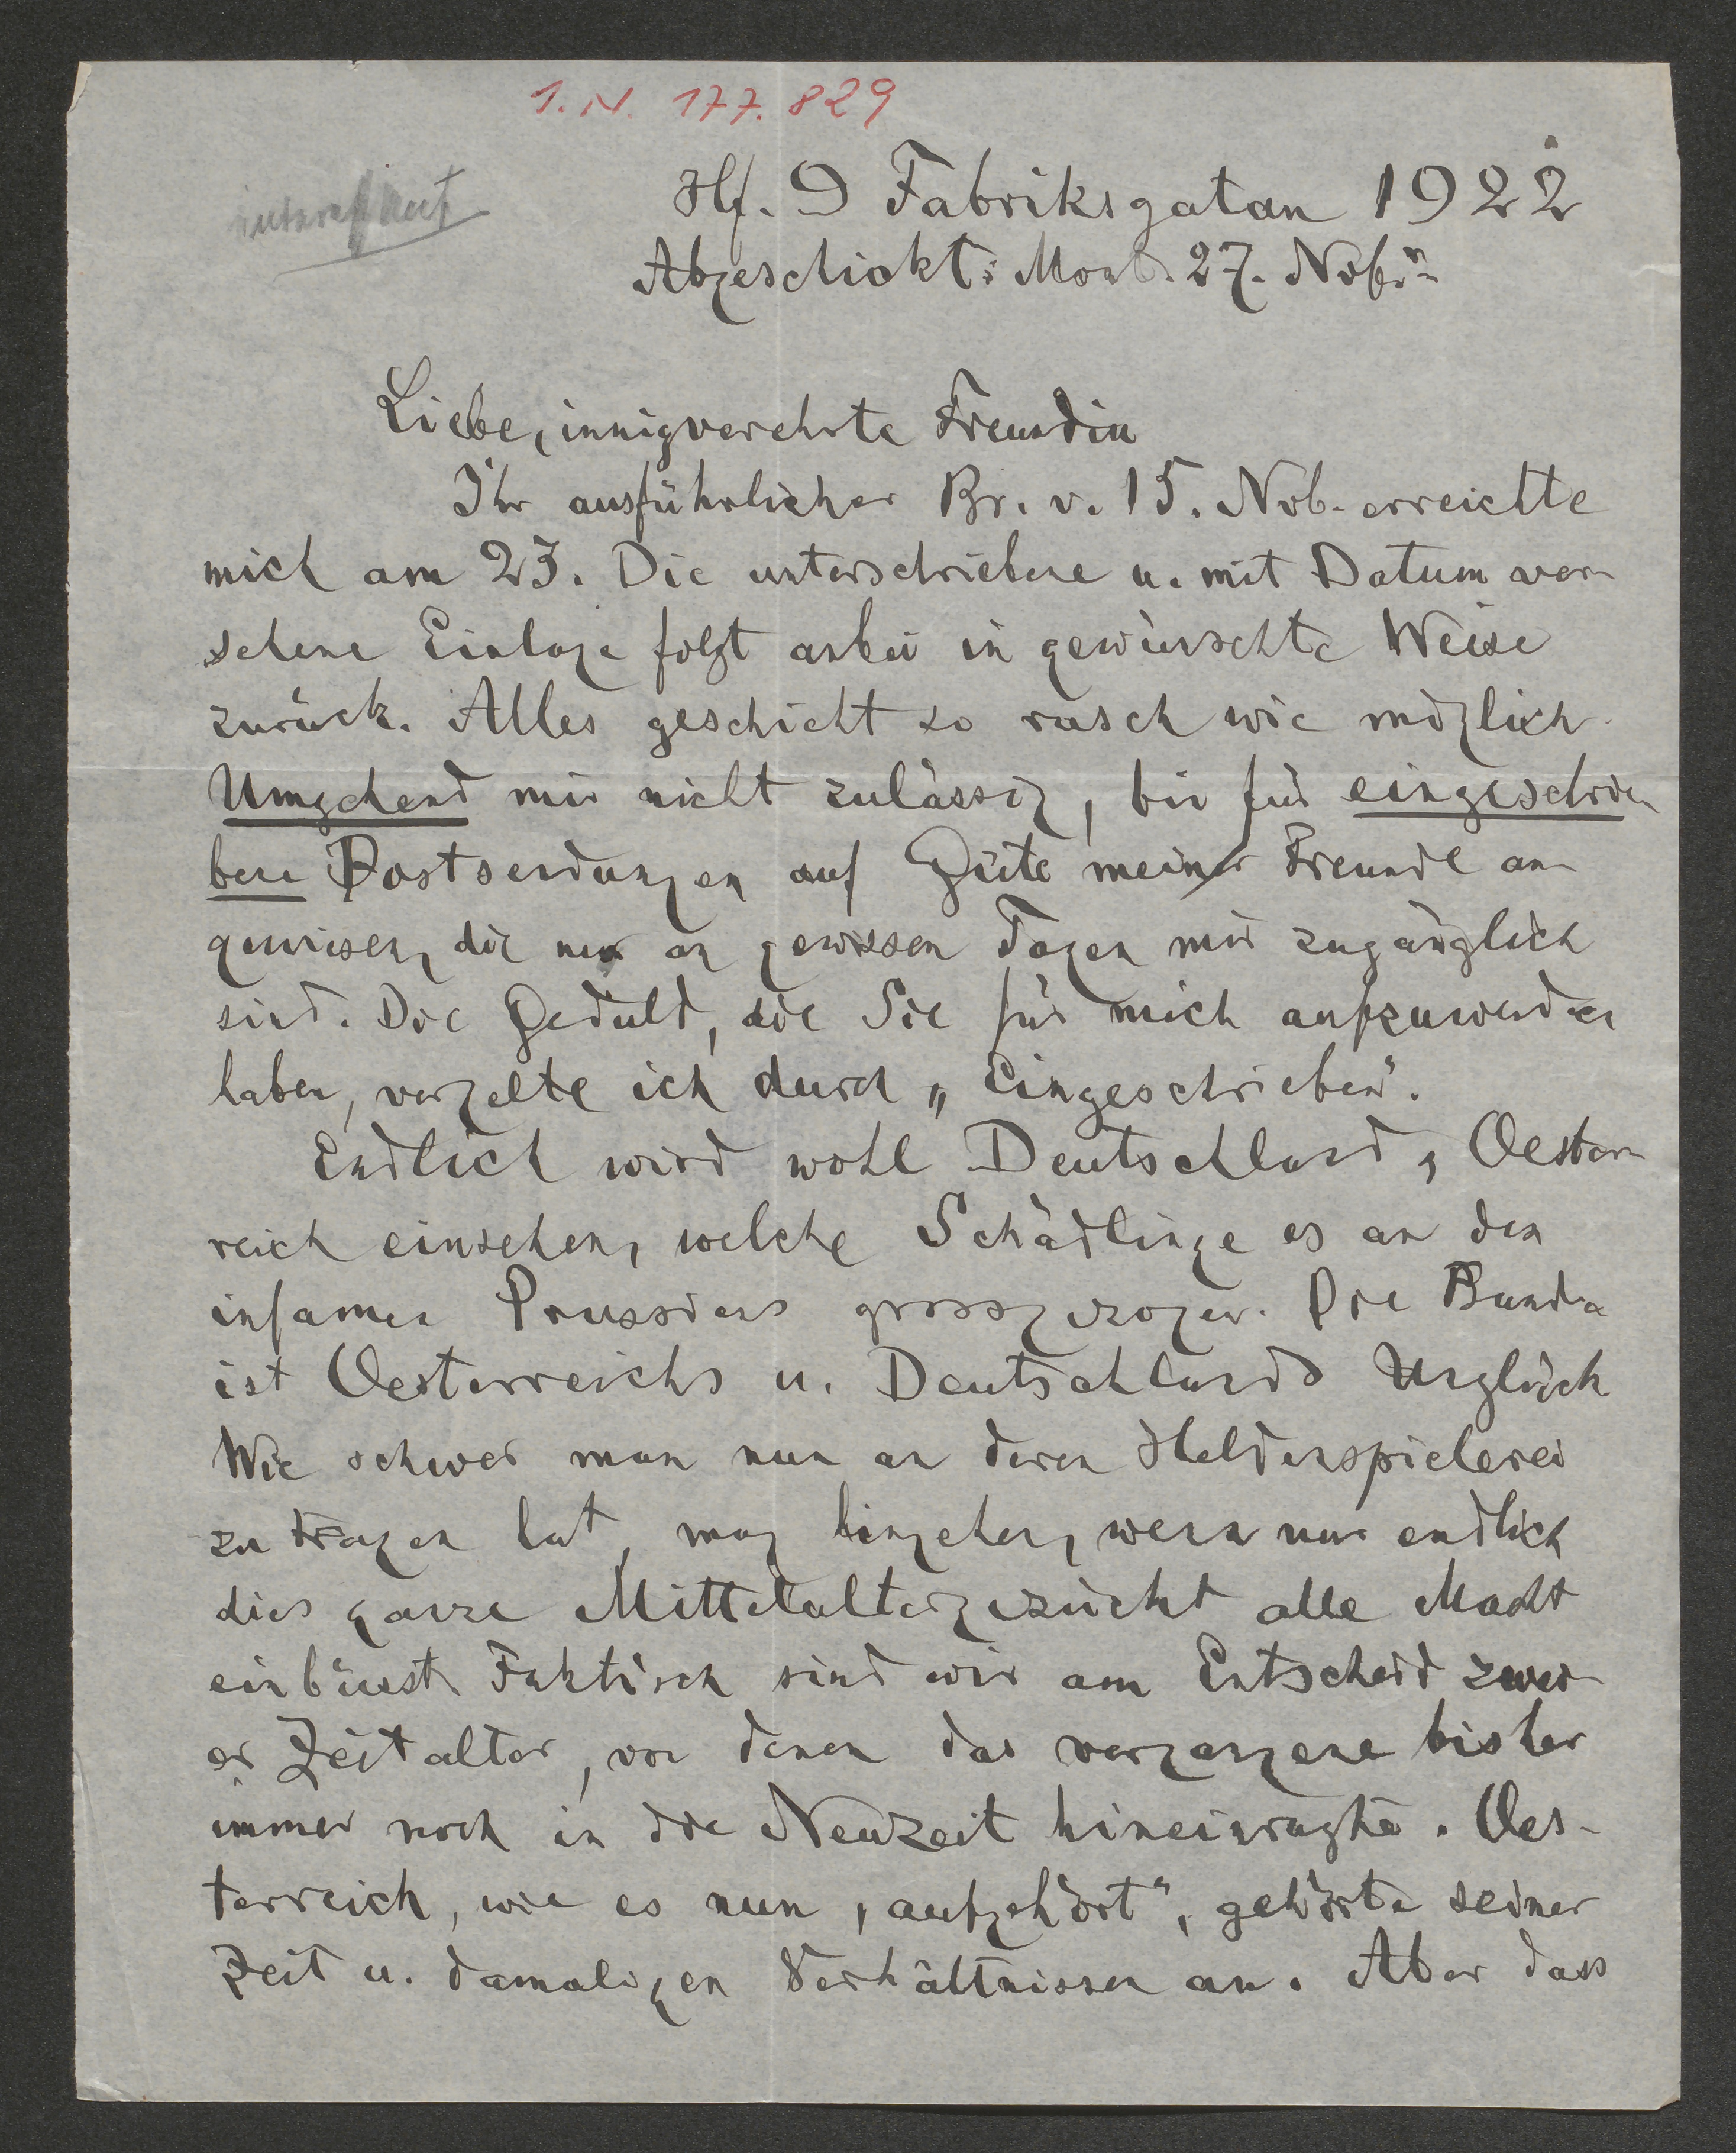 I. N. 177.829
interessant
Hf. 9 Fabriksgatan 1922
Abgeschickt: Mont. 27. Nobr.
Liebe, innigverehrte Freundin
Ihr ausführlicher Br. v. 15. Nob. erreichte
mich am 23. Die unterschriebene u. mit Datum ver-
sehene Einlage folgt anbei in gewünschte Weise
zurück. Alles geschieht so rasch wie möglich.
Umgehend mir nicht zulässig, bin für eingeschrie-
bene Postsendungen auf Güte meiner Freunde an-
gewiesen, die nur an gewissen Tagen mir zugänglich
sind. Die Geduld, die Sie für mich aufzuwenden
haben, vergelte ich durch „Eingeschrieben".
Endlich wird wohl Deutschland, Oester-
reich einsehen, welche Schädlinge es an den
infamen Prussiens grossgezogen. Die Bande
ist Oesterreichs u. Deutschlands Unglück
Wie schwer man nun an deren Heldenspielerei
zu tragen hat, mag hingehen, wenn nur endlich
dies ganze Mittelaltergezücht alle Macht
einbüsst. Faktisch sind wir am Entscheid zwei-
er Zeitalter, von denen das vergangene bisher
immer noch in die Neuzeit hineinragte. Oes-
terreich, wie es nun „aufgehört", gehörte seiner
Zeit u. damaligen Verhältnissen an. Aber dass